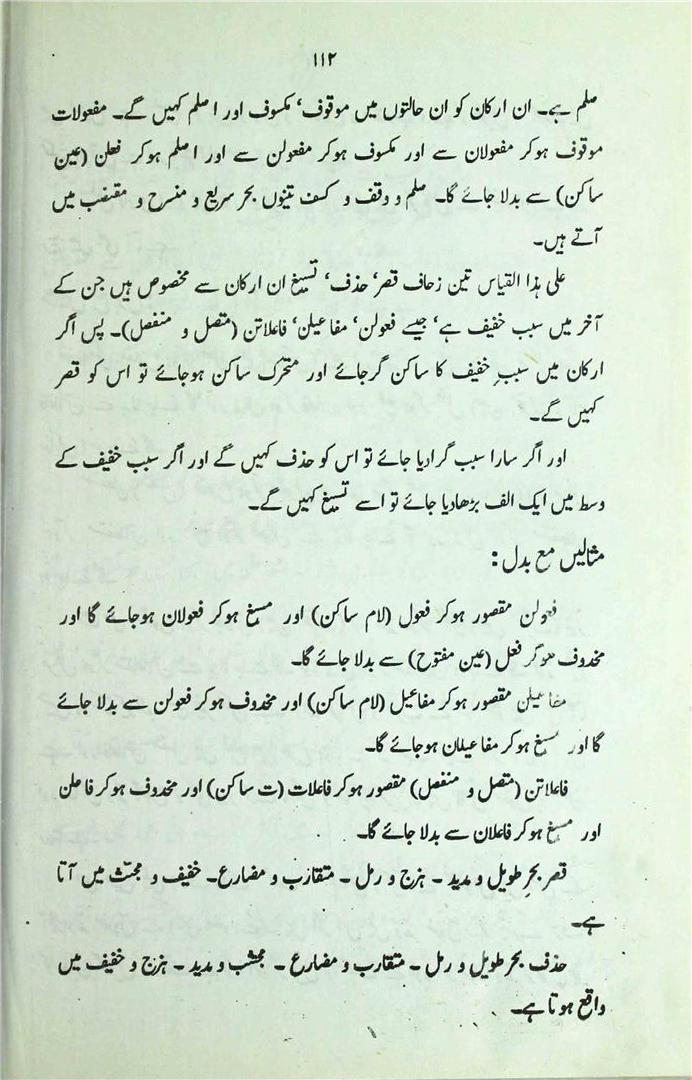 ۱۱۲
صلم ہے۔ ان ارکان کو ان حالتوں میں موقوف، مکسوف اور اصلم کہیں گے۔ مفعولات
موقوف ہوکر مفعولان سے اور مکسوف ہوکر مفعولن سے اور اصلم ہوکر فعلن (عین
ساکن) سے بدلا جائے گا۔ صلم و وقف و کسف تینوں بحر سریع و منسرح و مقتضب میں
آتے ہیں۔
علی ہذا القیاس تین زحاف قصر، حذف، تسبیغ ان ارکان سے مخصوص ہیں جن کے
آخر میں سبب خفیف ہے، جیسے فعولن، مفاعیلن، فاعلاتن (متصل و منفصل)۔ پس اگر
ارکان میں سببِ خفیف کا ساکن گرجائے اور متحرک ساکن ہوجائے تو اس کو قصر
کہیں گے۔
اور اگر سارا سبب گرادیا جائے تو اس کو حذف کہیں گے اور اگر سبب خفیف کے
وسط میں ایک الف بڑھادیا جائے تو اسے تسبیغ کہیں گے۔
مثالیں مع بدل :
فعولن مقصور ہوکر فعول (لام ساکن) اور مسبغ ہوکر فعولان ہوجائے گا اور
محذوف ہوکر فعل (عین مفتوح) سے بدلا جائے گا۔
مفاعیلن مقصور ہوکر مفاعیل (لام ساکن) اور محذوف ہوکر فعولن سے بدلا جائے
گا اور مسبغ ہوکر مفاعیلان ہوجائے گا۔
فاعلاتن (متصل و منفصل) مقصور ہوکر فاعلات (ت ساکن) اور محذوف ہوکر فاعلن
اور مسبغ ہوکر فاعلان سے بدلا جائے گا۔
قصر بحرِ طویل و مدید ۔ ہزج و رمل ۔ متقارب و مضارع۔ خفیف و مجتث میں آتا
ہے۔
حذف بحر طویل و رمل ۔ متقارب و مضارع ۔ مجتب و مدید ۔ ہزج و خفیف میں
واقع ہوتا ہے۔